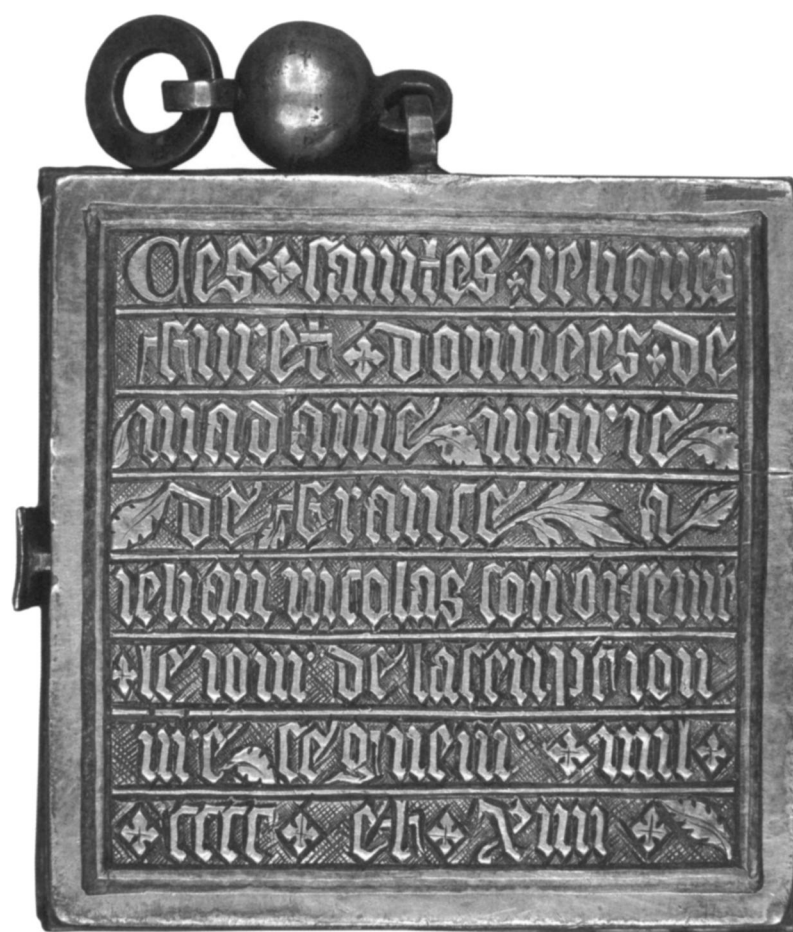 Ces saintes reliques
furet donnees de
madame marie
de france a
iehan nicolas son orfeure
le iour de lascenption
nre segneur mil
cccc et xiiii